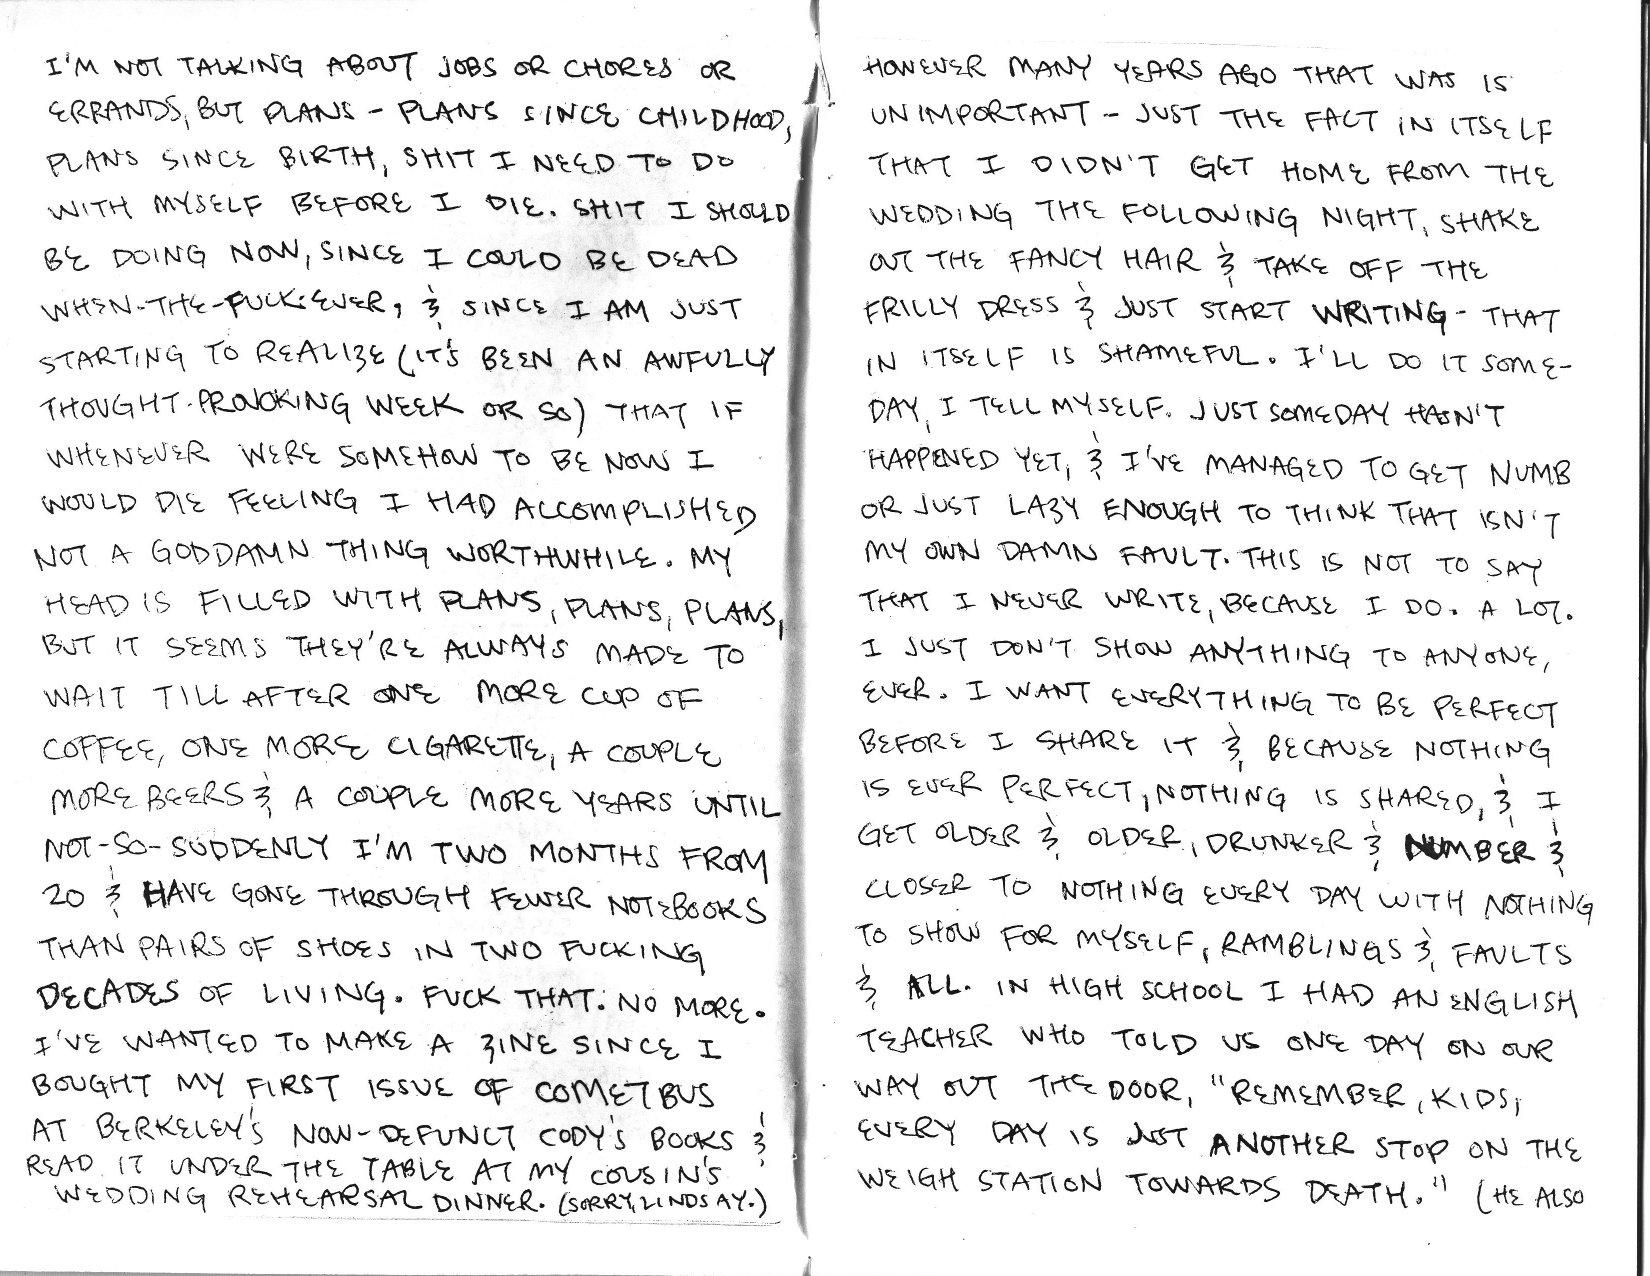 I'M NOT TALKING ABOUT JOBS OR CHORES OR
ERRANDS, BUT PLANS - PLANS SINCE CHILDHOOD,
PLANS SINCE BIRTH, SHIT I NEED TO DO
WITH MYSELF BEFORE I DIE. SHIT I SHOULD
BE DOING NOW, SINCE I COULD BE DEAD
WHEN-THE-FUCK-EVER, & SINCE I AM JUST
STARTING TO REALIZE (IT'S BEEN AN AWFULLY
THOUGHT-PROVOKING WEEK OR SO) THAT IF
WHENEVER WERE SOMEHOW TO BE NOW I
WOULD DIE FEELING I HAD ACCOMPLISHED
NOT A GODDAMN THING WORTHWHILE. MY
HEAD IS FILLED WITH PLANS, PLANS, PLANS,
BUT IT SEEMS THEY'RE ALWAYS MADE TO
WAIT TILL AFTER ONE MORE CUP OF
COFFEE, ONE MORE CIGARETTE, A COUPLE
MORE BEERS & A COUPLE MORE YEARS UNTIL
NOT-SO-SUDDENLY I'M TWO MONTHS FROM
20 & HAVE GONE THROUGH FEWER NOTEBOOKS
THAN PAIRS OF SHOES IN TWO FUCKING
DECADES OF LIVING. FUCK THAT. NO MORE.
I'VE WANTED TO MAKE A ZINE SINCE I
BOUGHT MY FIRST ISSUE OF COMETBUS
AT BERKELEY'S NOW-DEFUNCT CODY'S BOOKS &
READ IT UNDER THE TABLE AT MY COUSIN'S
WEDDING REHEARSAL DINNER. (SORRY, LINDSAY.)
HOWEVER MANY YEARS AGO THAT WAS IS
UNIMPORTANT - JUST THE FACT IN ITSELF
THAT I DIDN'T GET HOME FROM THE
WEDDING THE FOLLOWING NIGHT, SHAKE
OUT THE FANCY HAIR & TAKE OFF THE
FRILLY DRESS & JUST START WRITING - THAT
IN ITSELF IS SHAMEFUL. I'LL DO IT SOME-
DAY, I TELL MYSELF. JUST SOMEDAY HASN'T
HAPPENED YET, & I'VE MANAGED TO GET NUMB
OR JUST LAZY ENOUGH TO THINK THAT ISN'T
MY OWN DAMN FAULT. THIS IS NOT TO SAY
THAT I NEVER WRITE, BECAUSE I DO. A LOT.
I JUST DON'T SHOW ANYTHING TO ANYONE,
EVER. I WANT EVERYTHING TO BE PERFECT
BEFORE I SHARE IT & BECAUSE NOTHING
IS EVER PERFECT, NOTHING IS SHARED, & I
GET OLDER & OLDER, DRUNKER & NUMBER &
CLOSER TO NOTHING EVERY DAY WITH NOTHING
TO SHOW FOR MYSELF, RAMBLINGS & FAULTS
& ALL. IN HIGH SCHOOL I HAD AN ENGLISH
TEACHER WHO TOLD US ONE DAY ON OUR
WAY OUT THE DOOR, "REMEMBER, KIDS,
EVERY DAY IS JUST ANOTHER STOP ON THE
WEIGH STATION TOWARDS DEATH." (HE ALSO